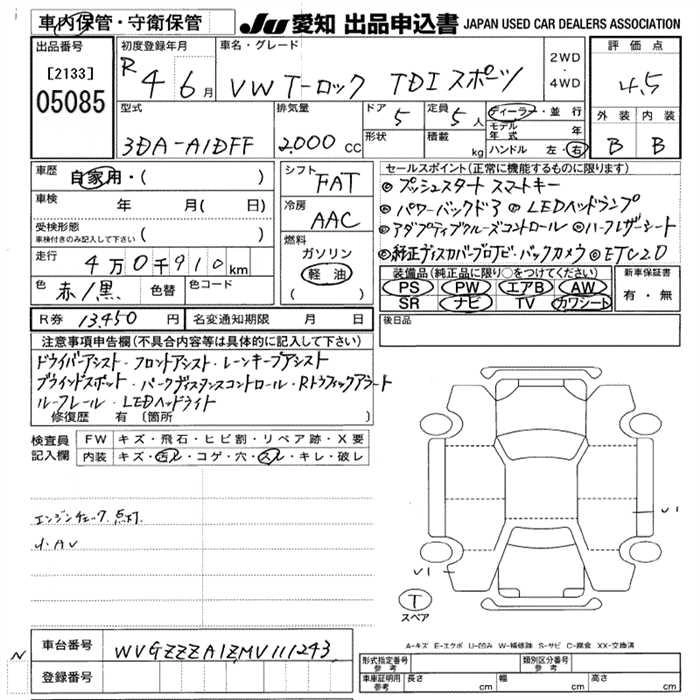 車内保管・守衛保管
JU 愛知 出品申込書 JAPAN USED CAR DEALERS ASSOCIATION
出品番号
[2133]
05085
初度登録年月
R 4 6月
車名・グレード
VW T-ロック TDIスポーツ
2WD
・
4WD
評価点
4.5
外装 内装
B B
型式
3DA-A1DFF
排気量
2.000 CC
ドア 5
定員 5人
形状
積載 kg
ディーラー・並行
モデル年式 年
ハンドル 左・右
車歴
自家用・( )
車検 年 月( 日)
受検形態
車検付きのみ記入して下さい ( )
走行 4万0千910km
色 赤/黒 色替 色コード
シフト FAT
冷房 AAC
燃料
ガソリン
軽油
( )
セールスポイント(正常に機能するものに限る)
◎プッシュスタート スマートキー
◎パワーバックドア ◎LEDヘッドランプ
◎アダプティブクルーズコントロール ◎ハーフレザーシート
◎純正ディスカバープロナビ・バックカメラ ◎ETC2.0
装備品(純正品に限り○をつけてください)
PS PW エアB AW
SR ナビ TV カワシート
新車保証書
有・無
R券 13.450円 名変通知期限 月 日
後日品
注意事項申告欄(不具合内容等は具体的に記入して下さい)
ドライバーアシスト・フロントアシスト・レーンキープアシスト
ブラインドスポット・パークディスタンスコントロール・Rトラフィックアラート
ルーフレール・LEDヘッドライト
修復歴 有 〔箇所 〕
検査員記入欄
FW キズ・飛石・ヒビ割・リペア跡・X要
内装 キズ・汚レ・コゲ・穴・スレ・キレ・破レ
エンジンチェック点灯.
小.AU
U1
U1
T
スペア
A-キズ E-エクボ U-凹み W-補修跡 S-サビ C-腐食 XX-交換済
N
車台番号 WVGZZZA1ZMV111243
登録番号
形式指定番号
参考
類別区分番号
参考
車庫証明用
参考
長さ cm 幅 cm 高さ cm